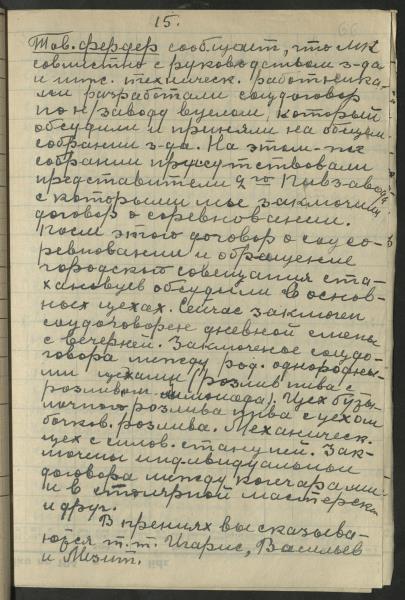 15.
Тов. Фердер сообщает, что МК
совместно с руководством з-да
и инж. техническ. работника-
ми разработали соцдоговор
по н/заводу в целом, который
обсудили и приняли на общем
собрании з-да. На этом-же
собрании присутствовали
представители 2го Пивз-авода
с которыми мы заключили
договор о соревновании.
После этого договор о соц со-
ревновании и обращение
городского совещания ста-
хановцев обсудили в основ-
ных цехах. Сейчас заключен
соцдоговорен дневной смены
с вечерней. Заключение соцдо-
говора между род. однородны-
ми цехами (розлив пива с
розливом лимонада). Цех буты-
лочного розлива пива с цехом
бочков. розлива. Механическ.
цех с силов. станцией. Зак-
лючены индивидуальные
договора между
и в столярной мастерск.
и друг.
В прениях высказыва-
ются т.т. Игарис, Васильев
и